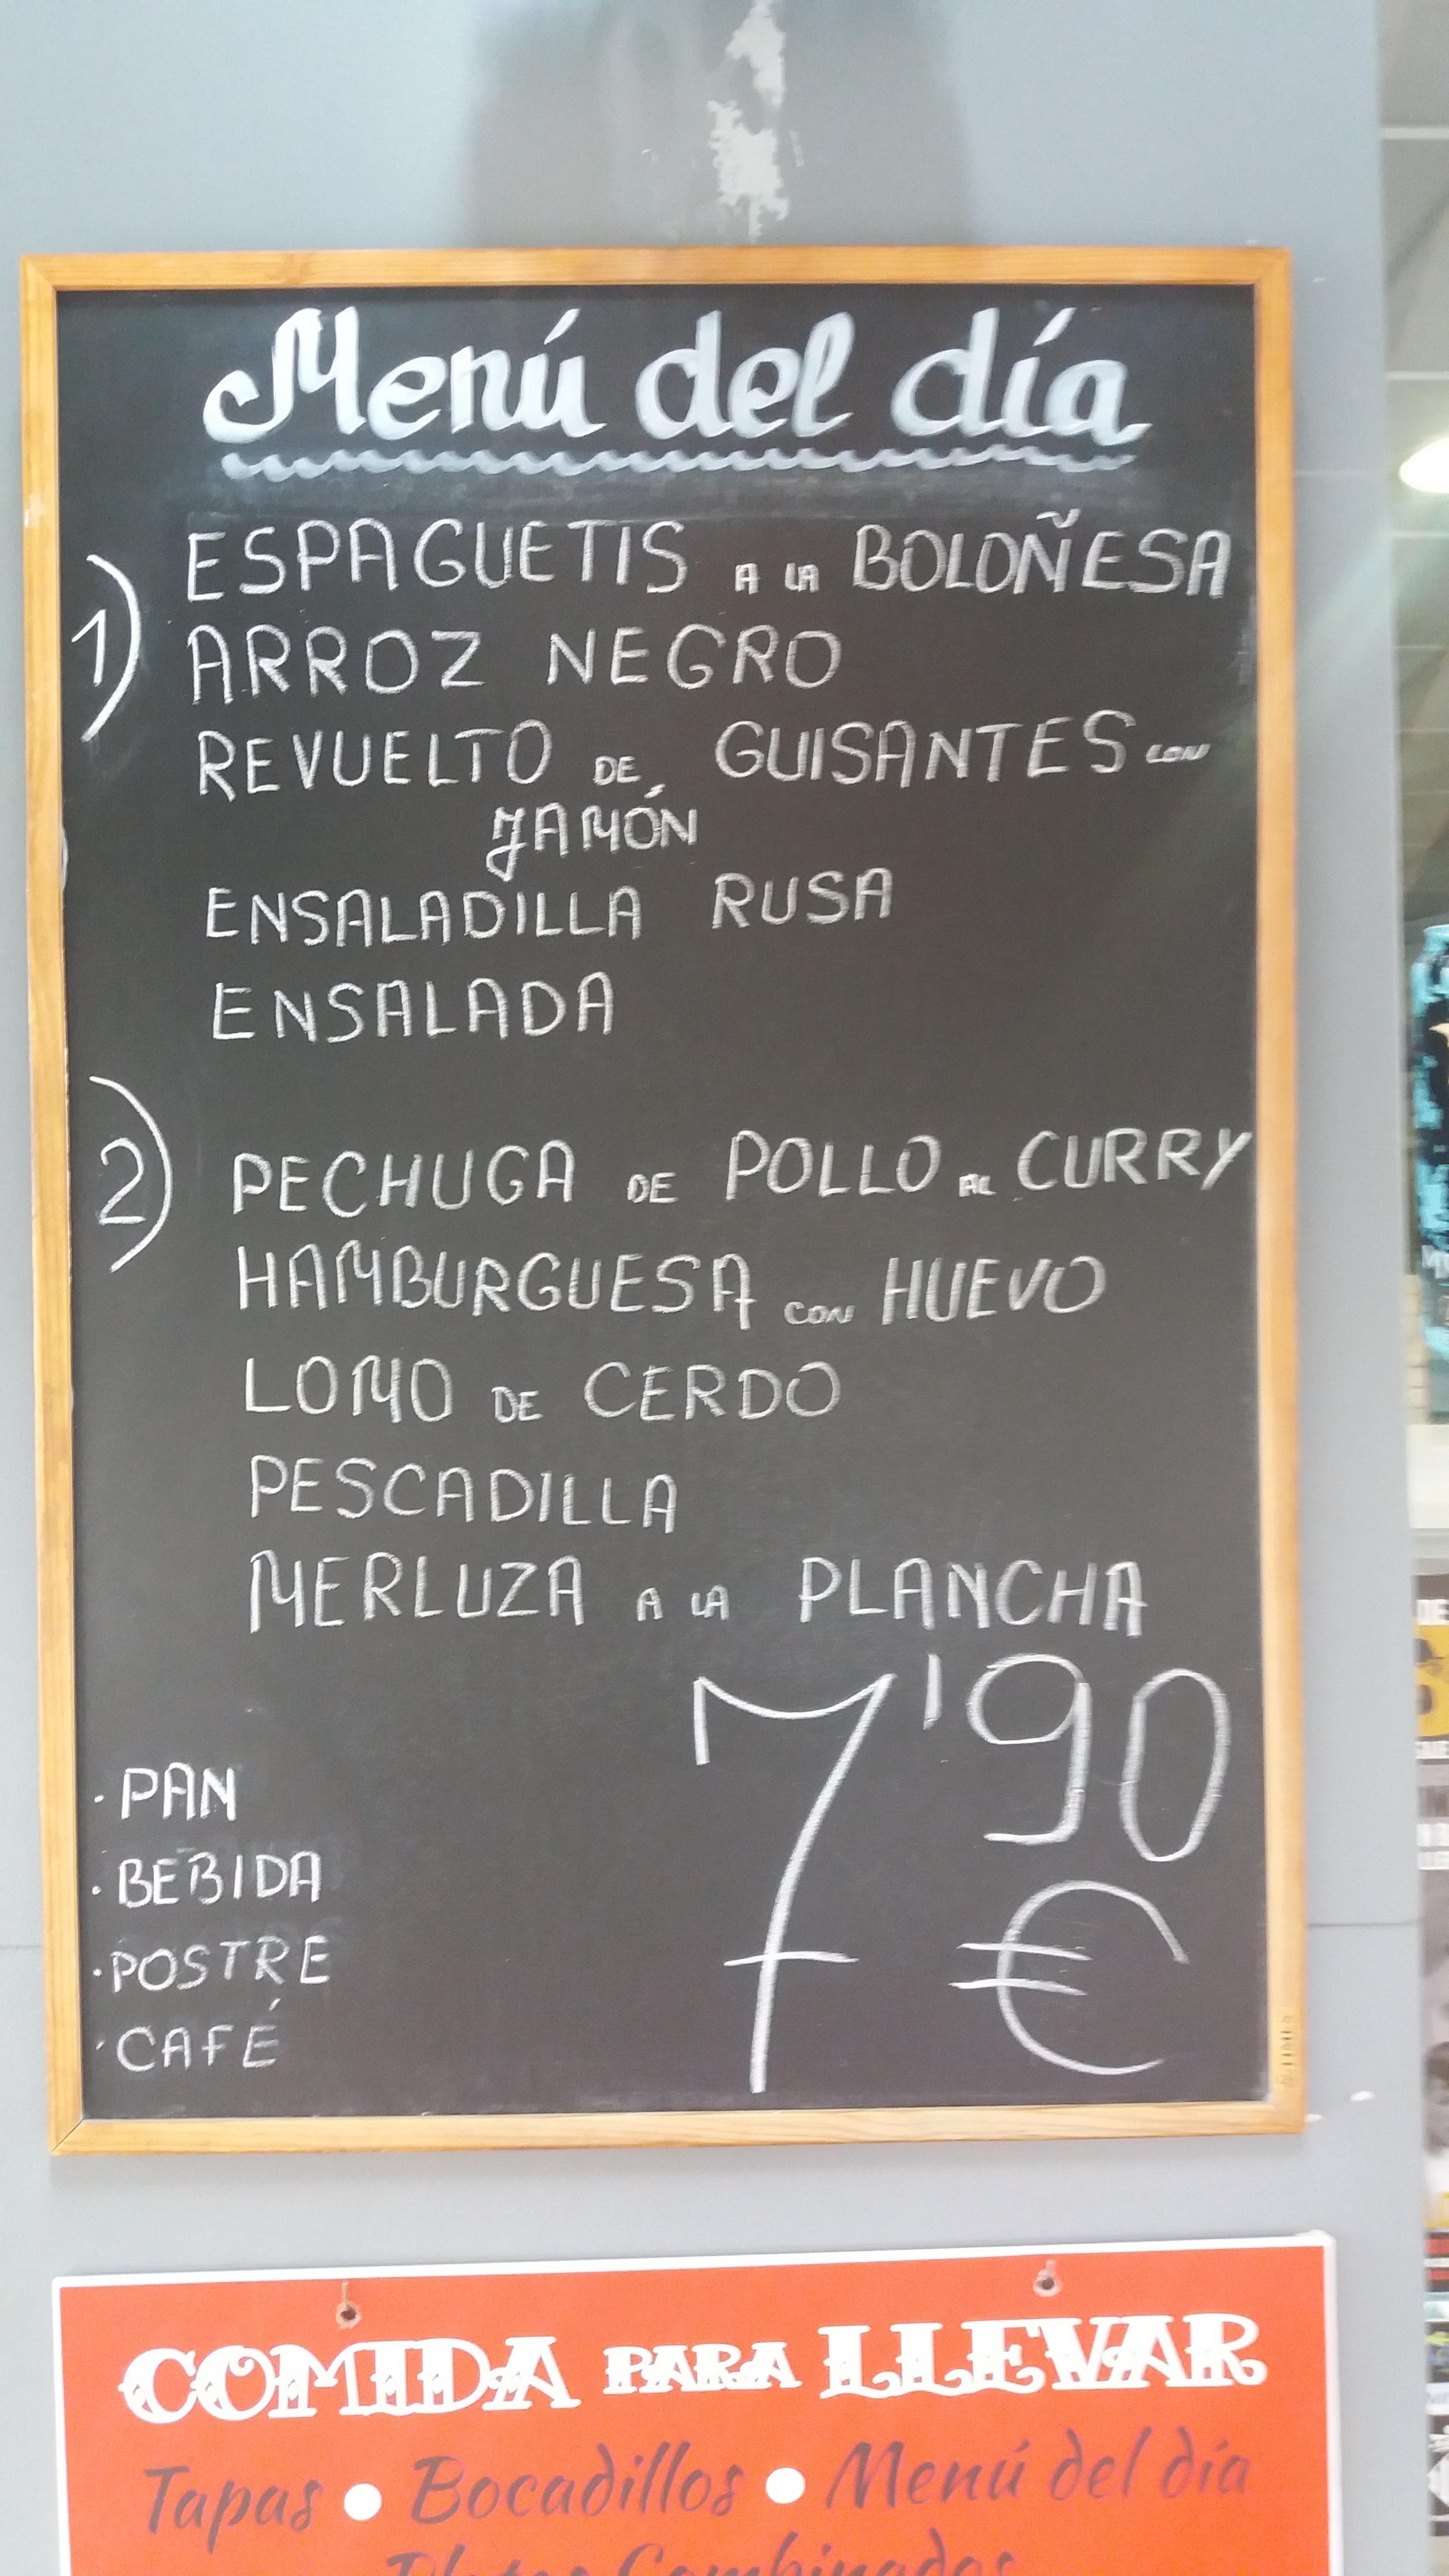 Menú del día
1) ESPAGUETIS A LA BOLOÑESA
ARROZ NEGRO
REVUELTO DE GUISANTES CON
JAMÓN
ENSALADILLA RUSA
ENSALADA
2) PECHUGA DE POLLO AL CURRY
HAMBURGUESA CON HUEVO
LOMO DE CERDO
PESCADILLA
MERLUZA A LA PLANCHA
7'90
€
· PAN
· BEBIDA
· POSTRE
· CAFÉ
COMIDA PARA LLEVAR
Tapas • Bocadillos • Menú del día
Platos Combinados